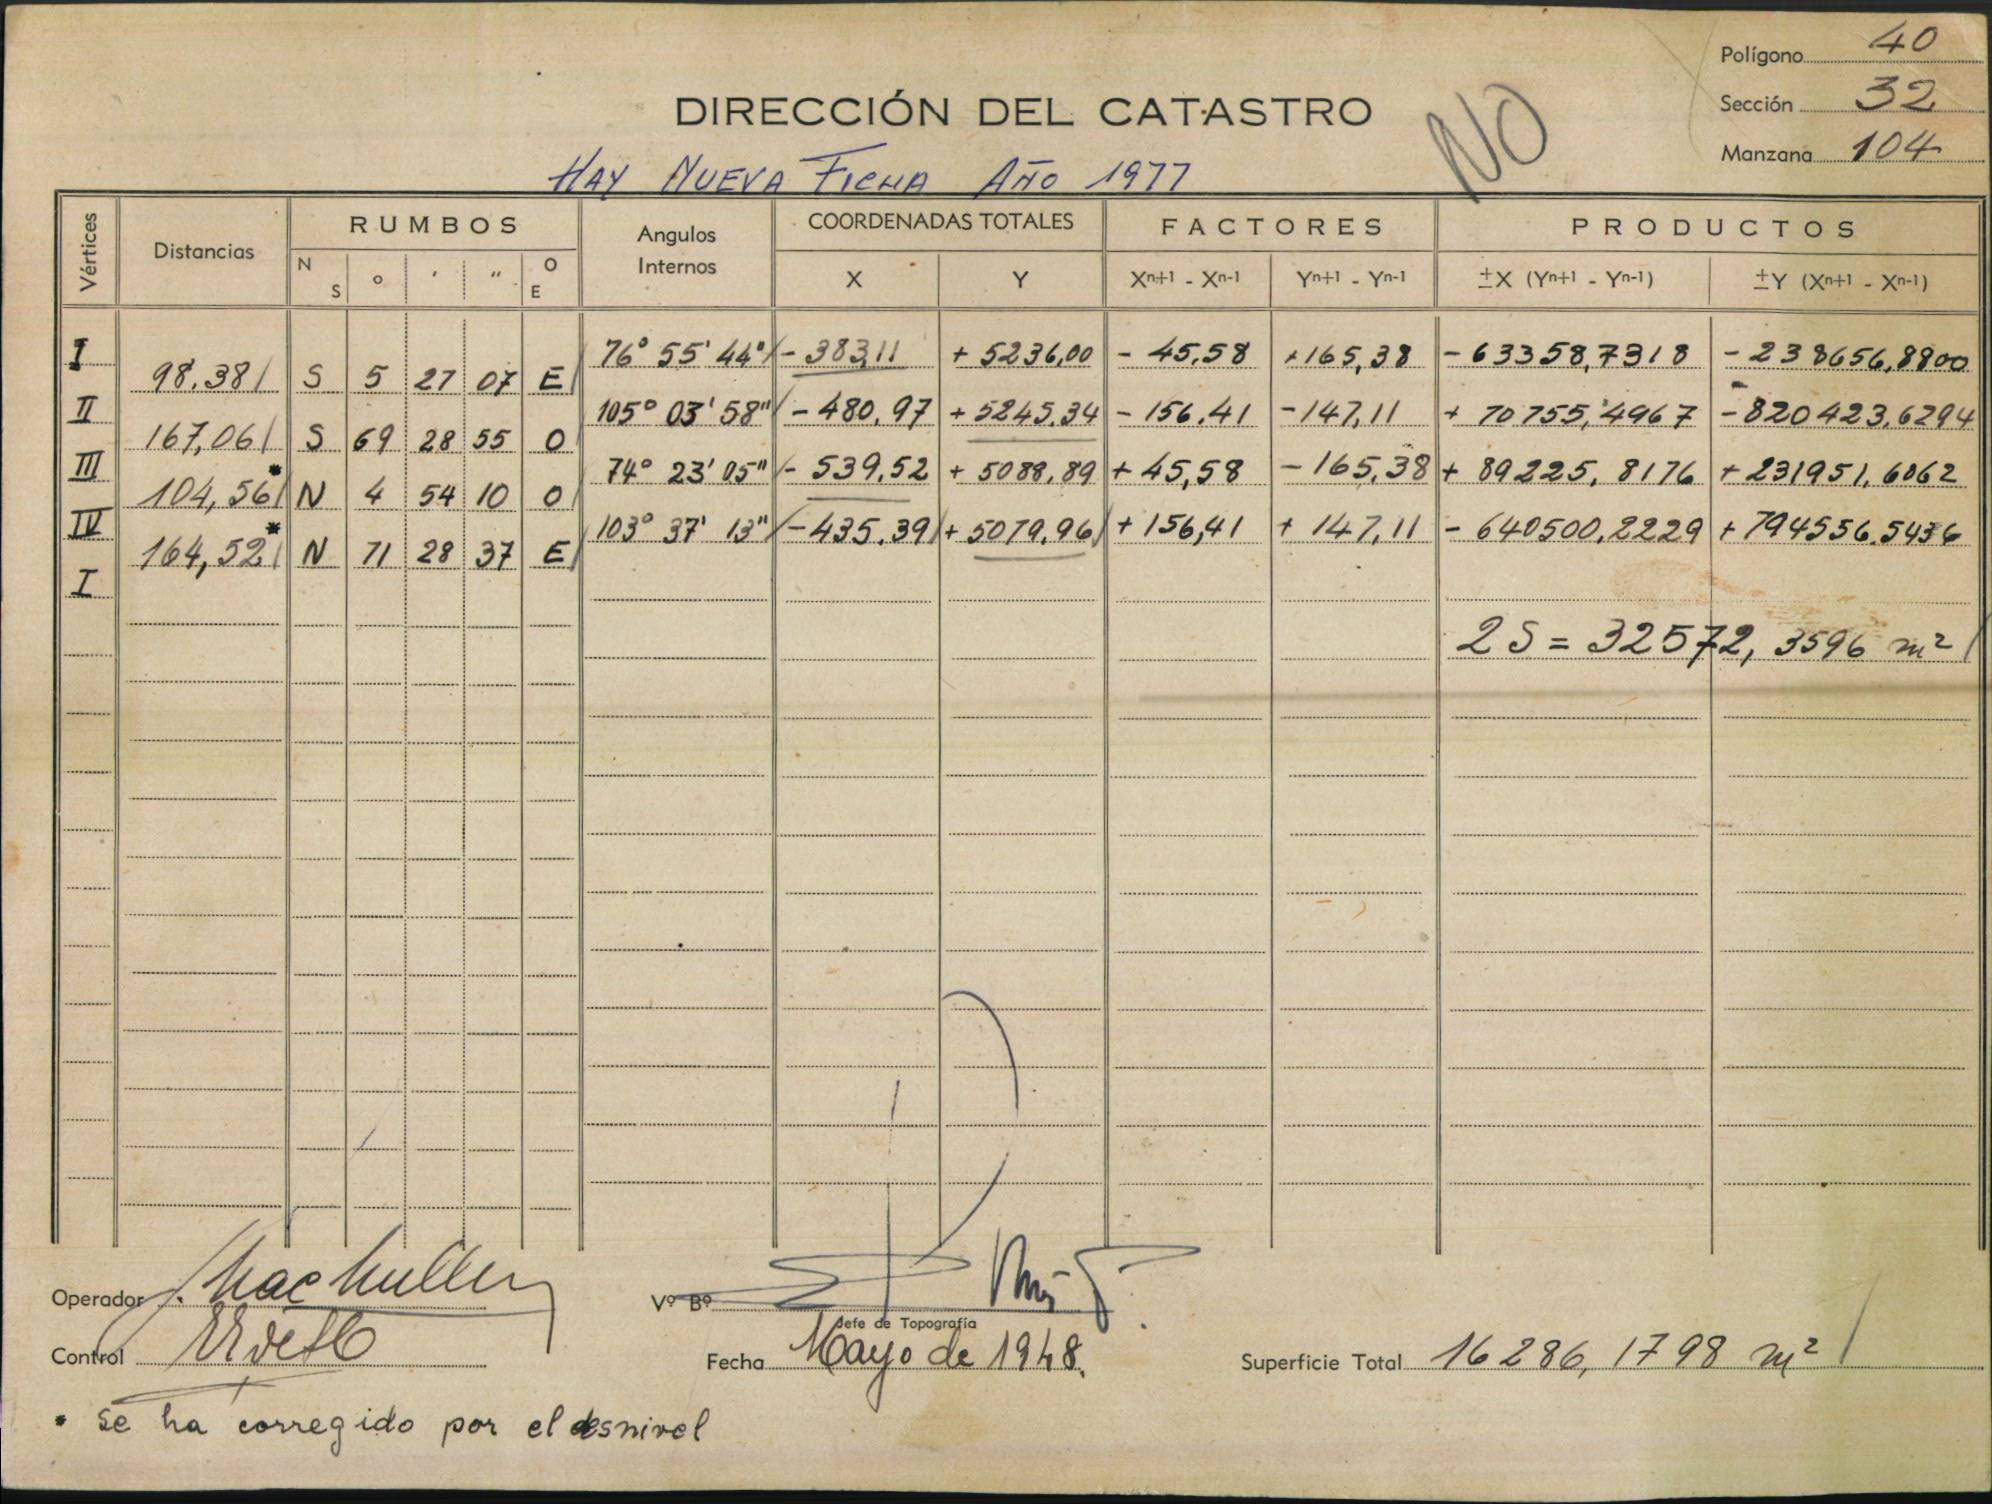 Polígono 40
DIRECCIÓN DEL CATASTRO
NO
Sección 32
Manzana 104
HAY NUEVA FICHA AÑO 1977
Vértices Distancias RUMBOS Angulos Internos COORDENADAS TOTALES FACTORES PRODUCTOS
N S o ' " O E X Y Xn+1 - Xn-1 Yn+1 - Yn-1 ±X (Yn+1 - Yn-1) ±Y (Xn+1 - Xn-1)
I 76° 55' 44" - 383,11 + 5236,00 - 45,58 +165,38 - 63358,7318 - 238656,8800
98.38 S 5 27 07 E
II 105° 03' 58" - 480,97 + 5245,34 - 156.41 - 147,11 + 70755,4967 - 820423,6294
167,06 S 69 28 55 O
III 74° 23' 05" - 539,52 + 5088,89 + 45,58 - 165,38 + 89225,8176 + 231951,6062
104,56* N 4 54 10 O
IV 103° 37' 13" - 435,39 + 5079,96 + 156,41 + 147,11 - 640500,2229 + 794556.5436
164,52* N 71 28 37 E
I
2S = 32572,3596 m²
Operador
Vº Bº
Jefe de Topografía
Control
Fecha Mayo de 1948.
Superficie Total 16286,1798 m²
* se ha corregido por el desnivel